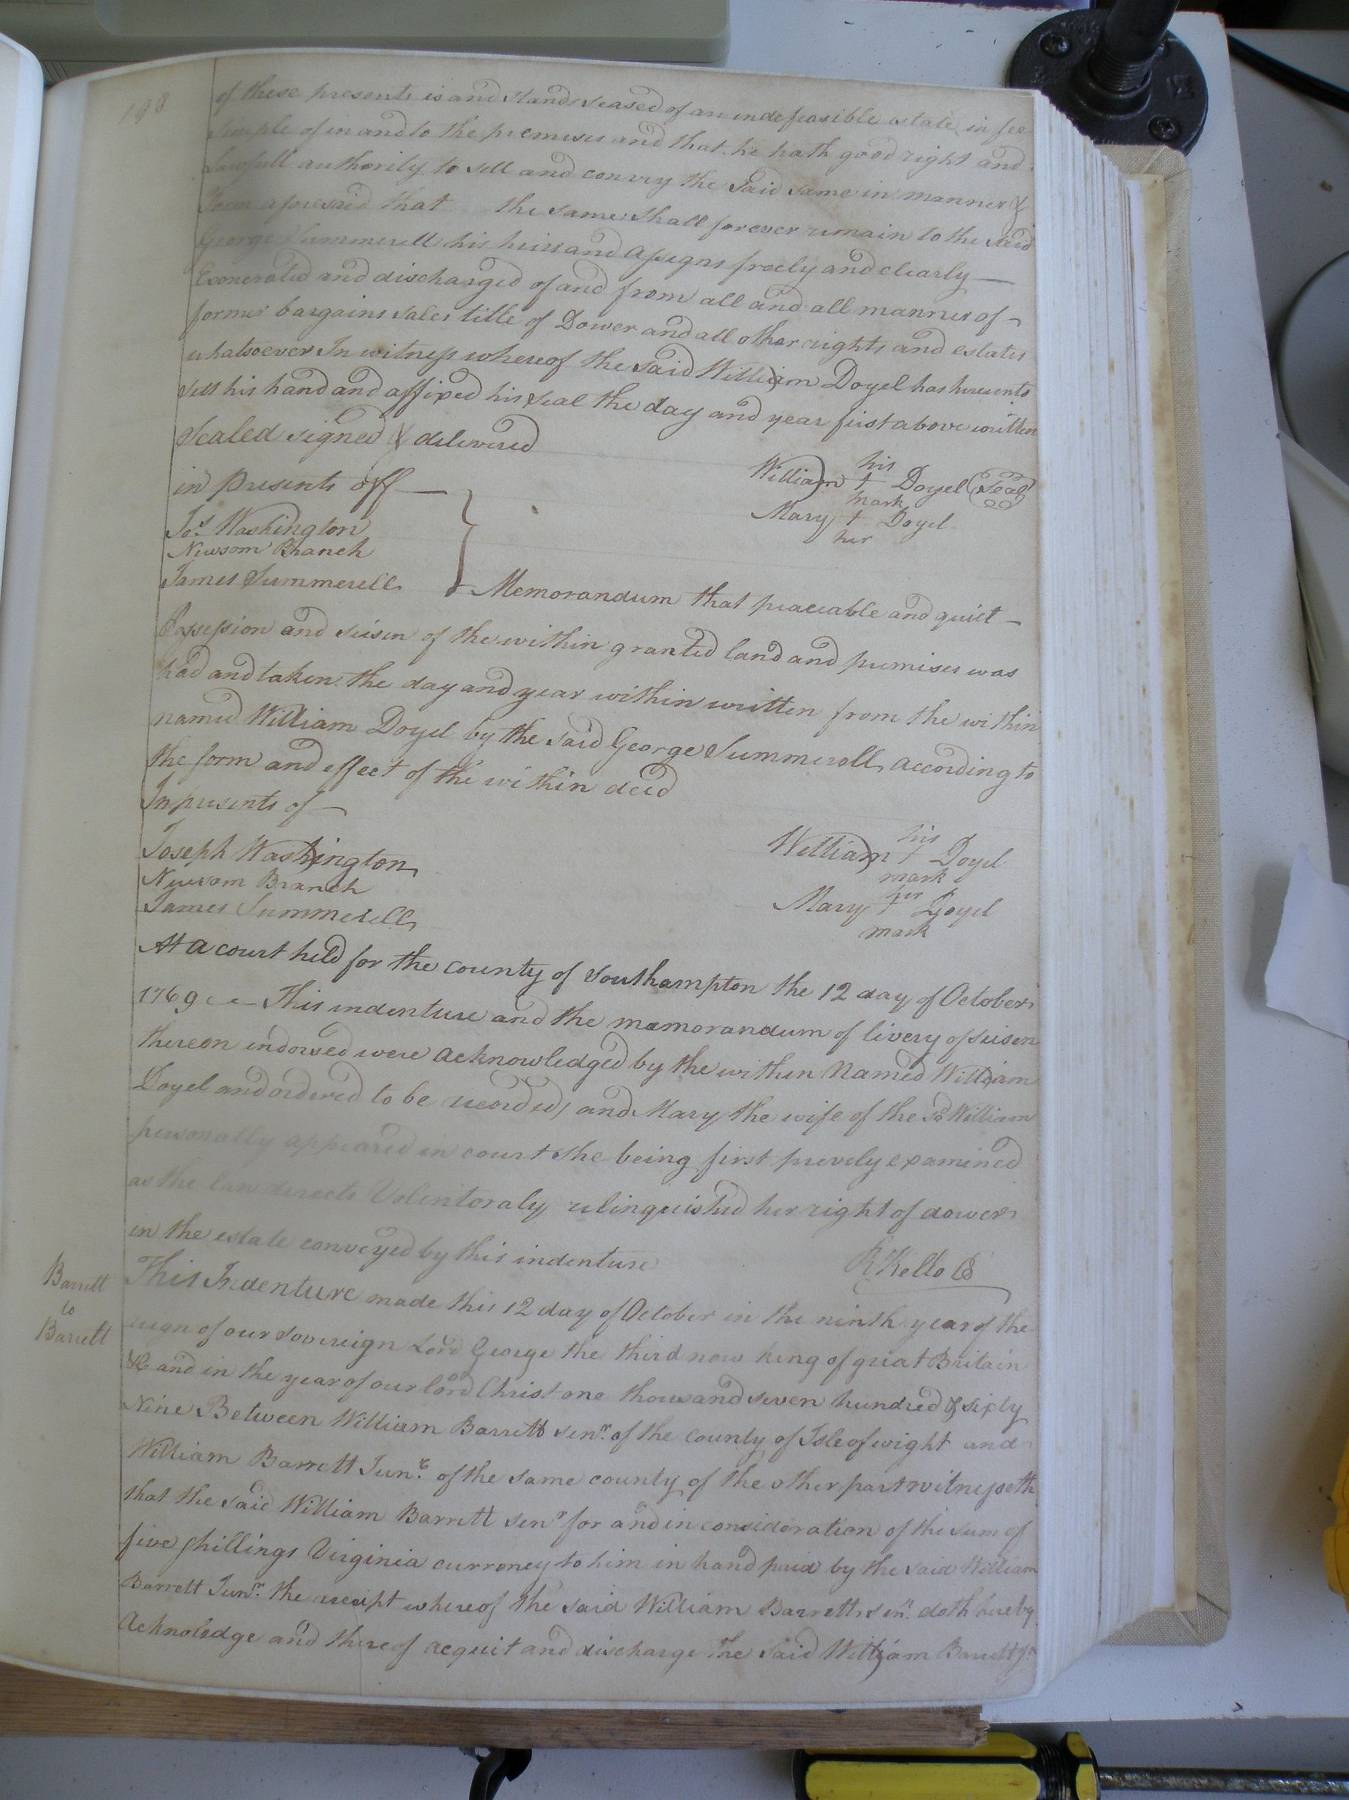 198
of these presents is and stands seased of an indefeasible estate in fee
simple of in and to the premises and that he hath good right and
Lawfull authority to sell and convey the said same in manner &
form aforesaid that the same shall forever remain to the said
George Summerell his heirs and assigns freely and clearly
Exonerated and discharged of and from all and all manner of
former bargains sales title of Dower and all other rights and estates
whatsoever In witness whereof the said William Doyel has hereunto
sett his hand and affixed his seal the day and year first above written
Sealed signed & delivered
in Presents off
his
William + Doyel (Seal)
mark
Jos. Washington
Mary + Doyel
Newsom Branch
her
James Summerell
Memorandum that peaceable and quiet
Possession and seisen of the within granted land and premises was
had and taken the day and year within written from the within
named William Doyel by the said George Summerell according to
the form and effect of the within deed
In presents of
his
Joseph Washington
William + Doyel
mark
Newsom Branch
her
James Summerell
Mary + Doyel
mark
At a court held for the county of Southampton the 12 day of October
1769 This indenture and the memorandum of livery of seisen
thereon endorsed were acknowledged by the within Named William
Doyel and ordered to be recorded, and Mary the wife of the sd William
personally appeared in court she being first prevely examined
as the law directs Volintoraly relinquished her right of dower
in the estate conveyed by this indenture
R Kello
Barrett
to
Barrett
This Indenture made this 12 day of October in the ninth year of the
reign of our sovereign Lord George the third now King of great Britain
&c and in the year of our lord Christ one thousand seven hundred & sixty
Nine Between William Barrett senr. of the county of Isle of wight and
William Barrett Junr. of the same county of the other part witnesseth
that the said William Barrett senr for and in consideration of the sum of
five shillings Virginia currency to him in hand paid by the said William
Barrett Junr. the receipt whereof the said William Barrett senr. doth hereby
Acknoledge and thereof acquit and discharge the said William Barrett Jr